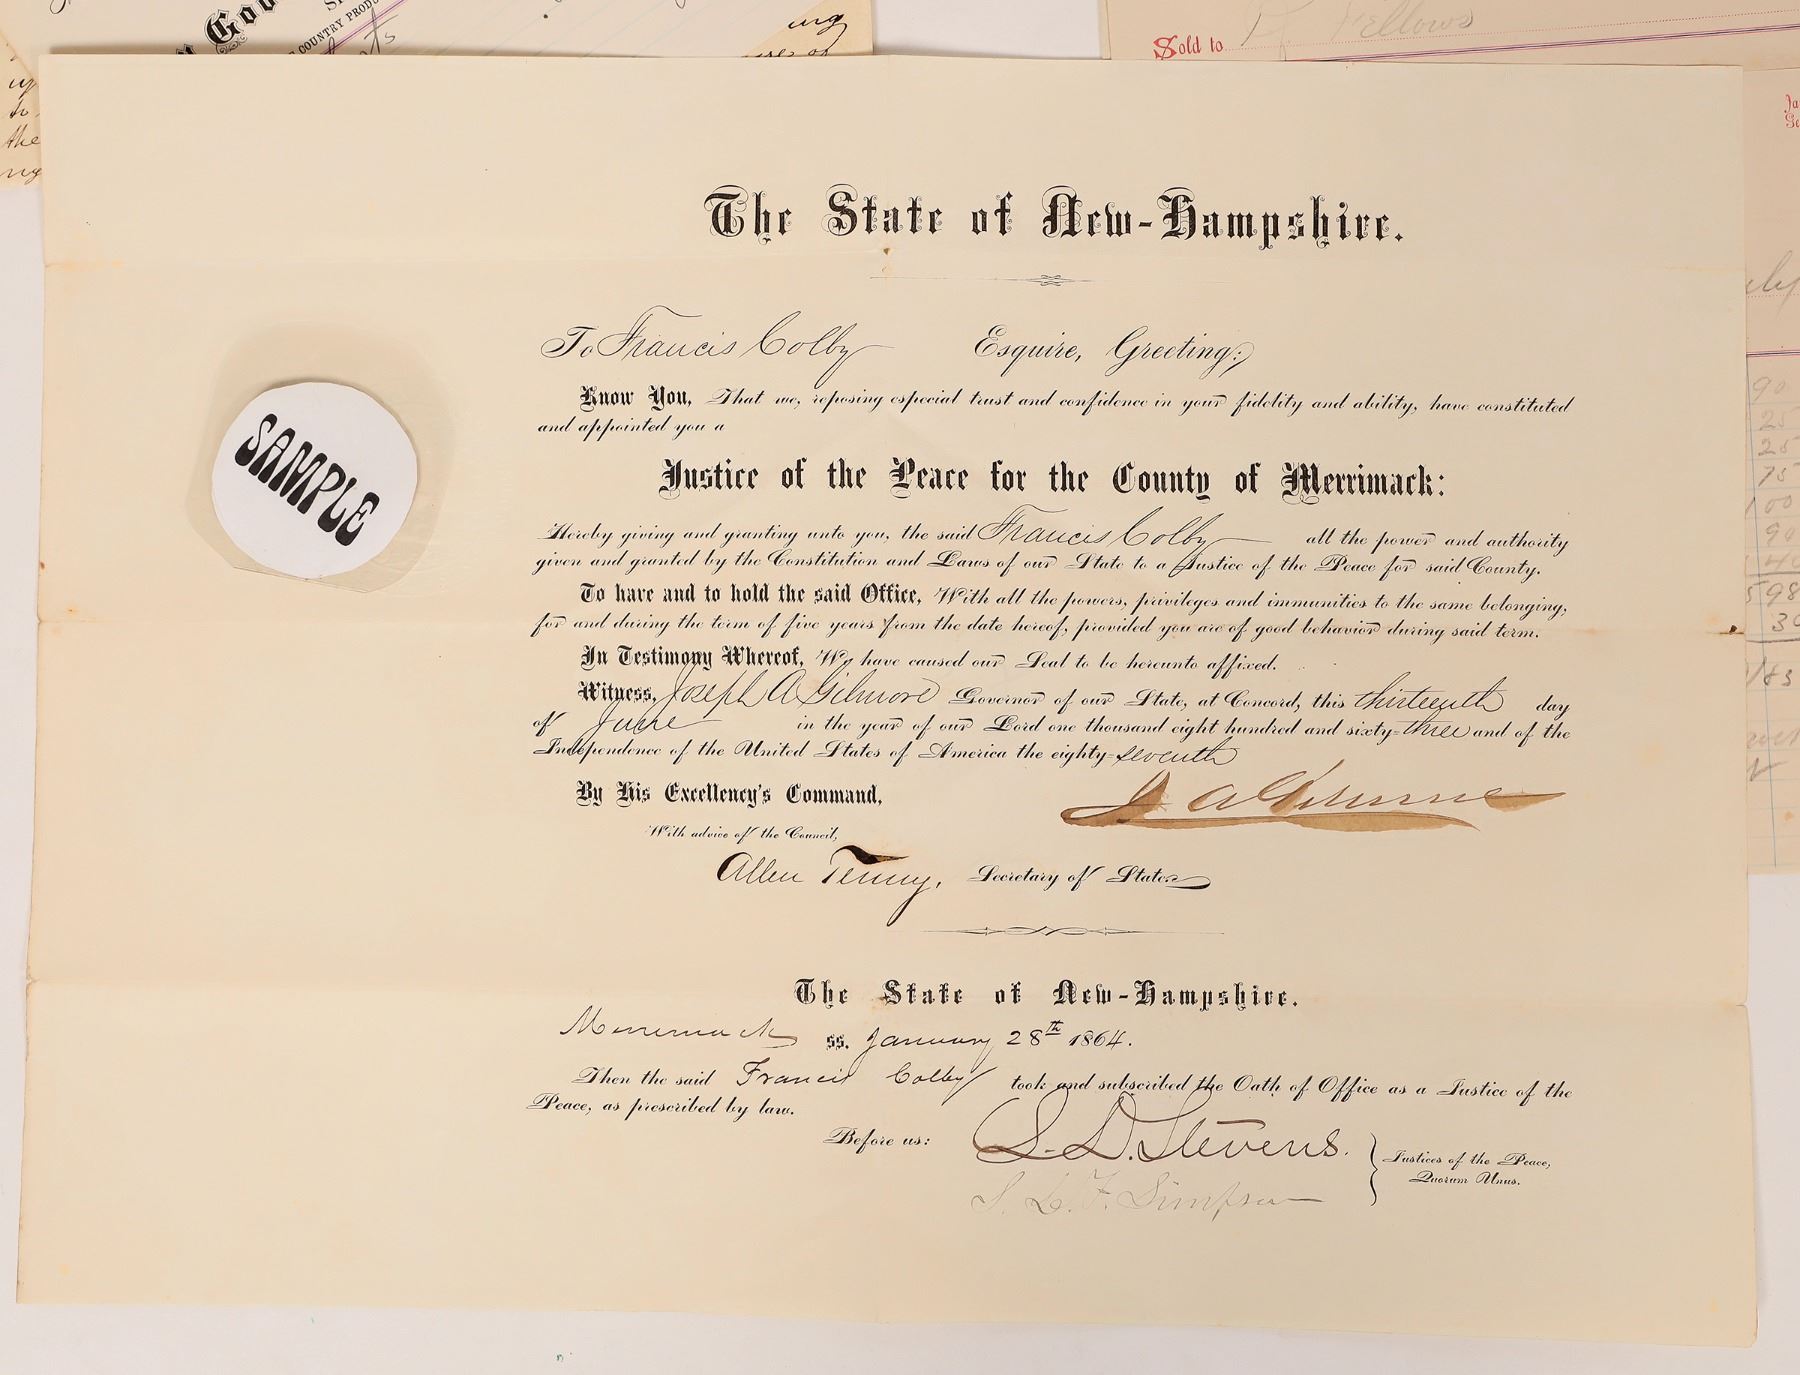 Goo
COUNTRY PROD
ing
up
to
the
ng
Sold to P. Fellows
The State of New-Hampshire.
To Francis Colby Esquire, Greeting:
Know You, That we, reposing especial trust and confidence in your fidelity and ability, have constituted
and appointed you a
Justice of the Peace for the County of Merrimack:
SAMPLE
Hereby giving and granting unto you, the said Francis Colby all the power and authority
given and granted by the Constitution and Laws of our State to a Justice of the Peace for said County.
To have and to hold the said Office, With all the powers, privileges and immunities to the same belonging,
for and during the term of five years from the date hereof, provided you are of good behavior during said term.
In Testimony Whereof, We have caused our Seal to be hereunto affixed.
Witness, Joseph A Gilmore Governor of our State, at Concord, this thirteenth day
of June in the year of our Lord one thousand eight hundred and sixty-three and of the
Independence of the United States of America the eighty-seventh
By His Excellency's Command,
J. A. Gilmore
With advice of the Council,
Allen Tenny, Secretary of State
The State of New-Hampshire.
Merrimack ss. January 28th 1864.
Then the said Francis Colby took and subscribed the Oath of Office as a Justice of the
Peace, as prescribed by law.
Before us: S. D. Stevens. } Justices of the Peace,
Quorum Unus.
S. L. F. Simpson
90
25
25
75
00
90
40
598
30